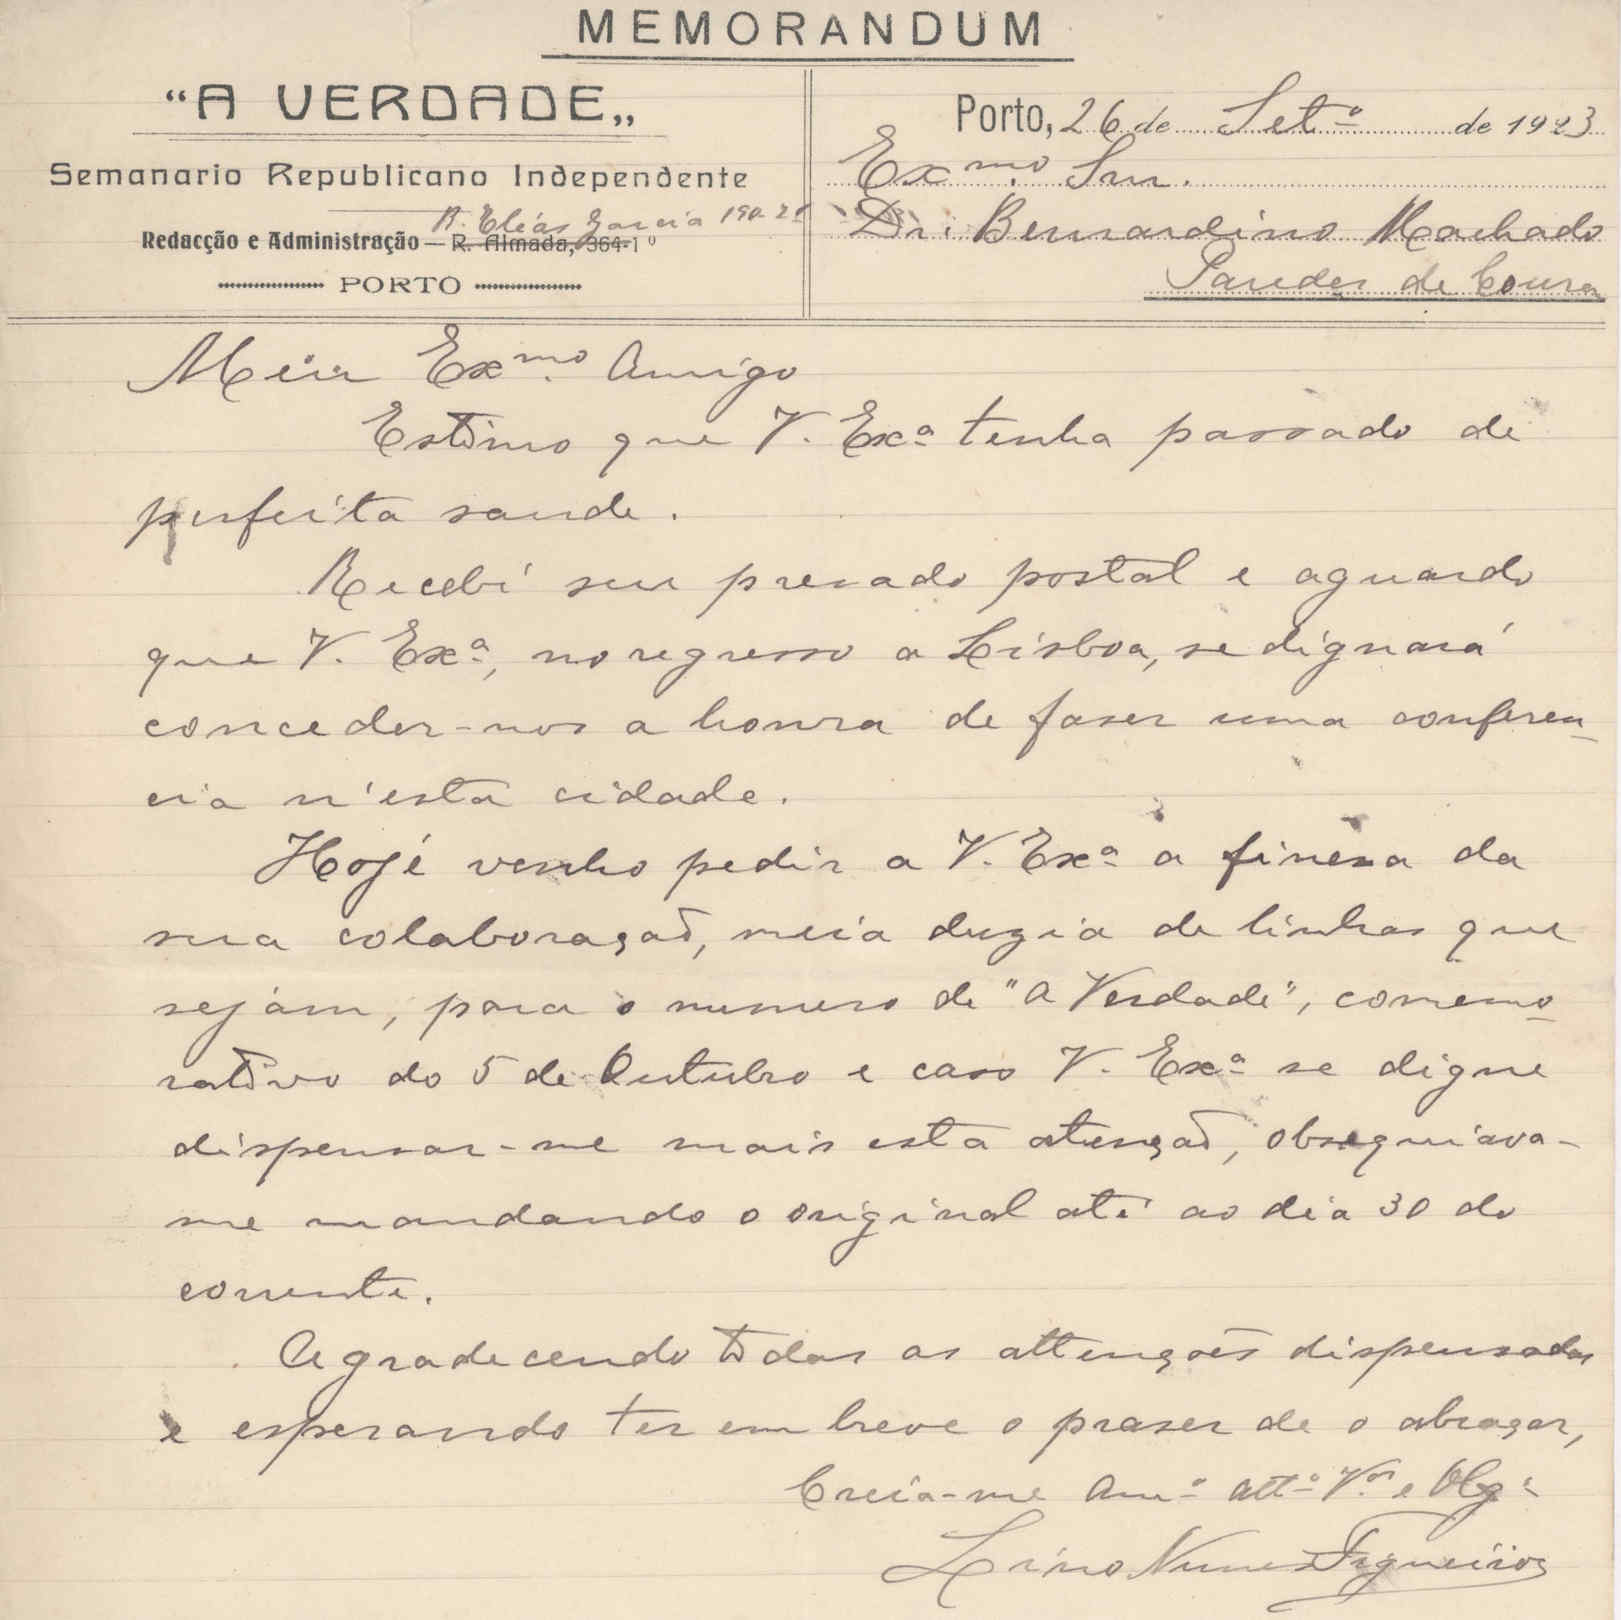 MEMORANDUM
"A VERDADE„
Semanario Republicano Independente
R. Elias Garcia 190-2º
Redacção e Administração — R. Almada, 364-1º
PORTO
Porto, 26 de Setº de 1923
Exmo. Snr.
Dr. Bernardino Machado
Paredes de Coura
Meu Exmo. Amigo
Estimo que V. Exª tenha passado de
perfeita saude.
Recebi seu presado postal e aguardo
que V. Exª, no regresso a Lisboa, se dignará
conceder-nos a honra de faser uma conferen
cia n'esta cidade.
Hoje venho pedir a V. Exª a finesa da
sua colaboração, meia duzia de linhas que
sejam, para o numero de "A Verdade", comemo
rativo do 5 de Outubro e caso V. Exª se digne
dispensar-me mais esta atenção, obsequiava-
me mandando o original até ao dia 30 do
corrente.
Agradecendo todas as attenções dispensadas
e esperando ter em breve o praser de o abraçar,
Creia-me Amº Attº Vor e Obgº
Lino Nunes Figueiroa